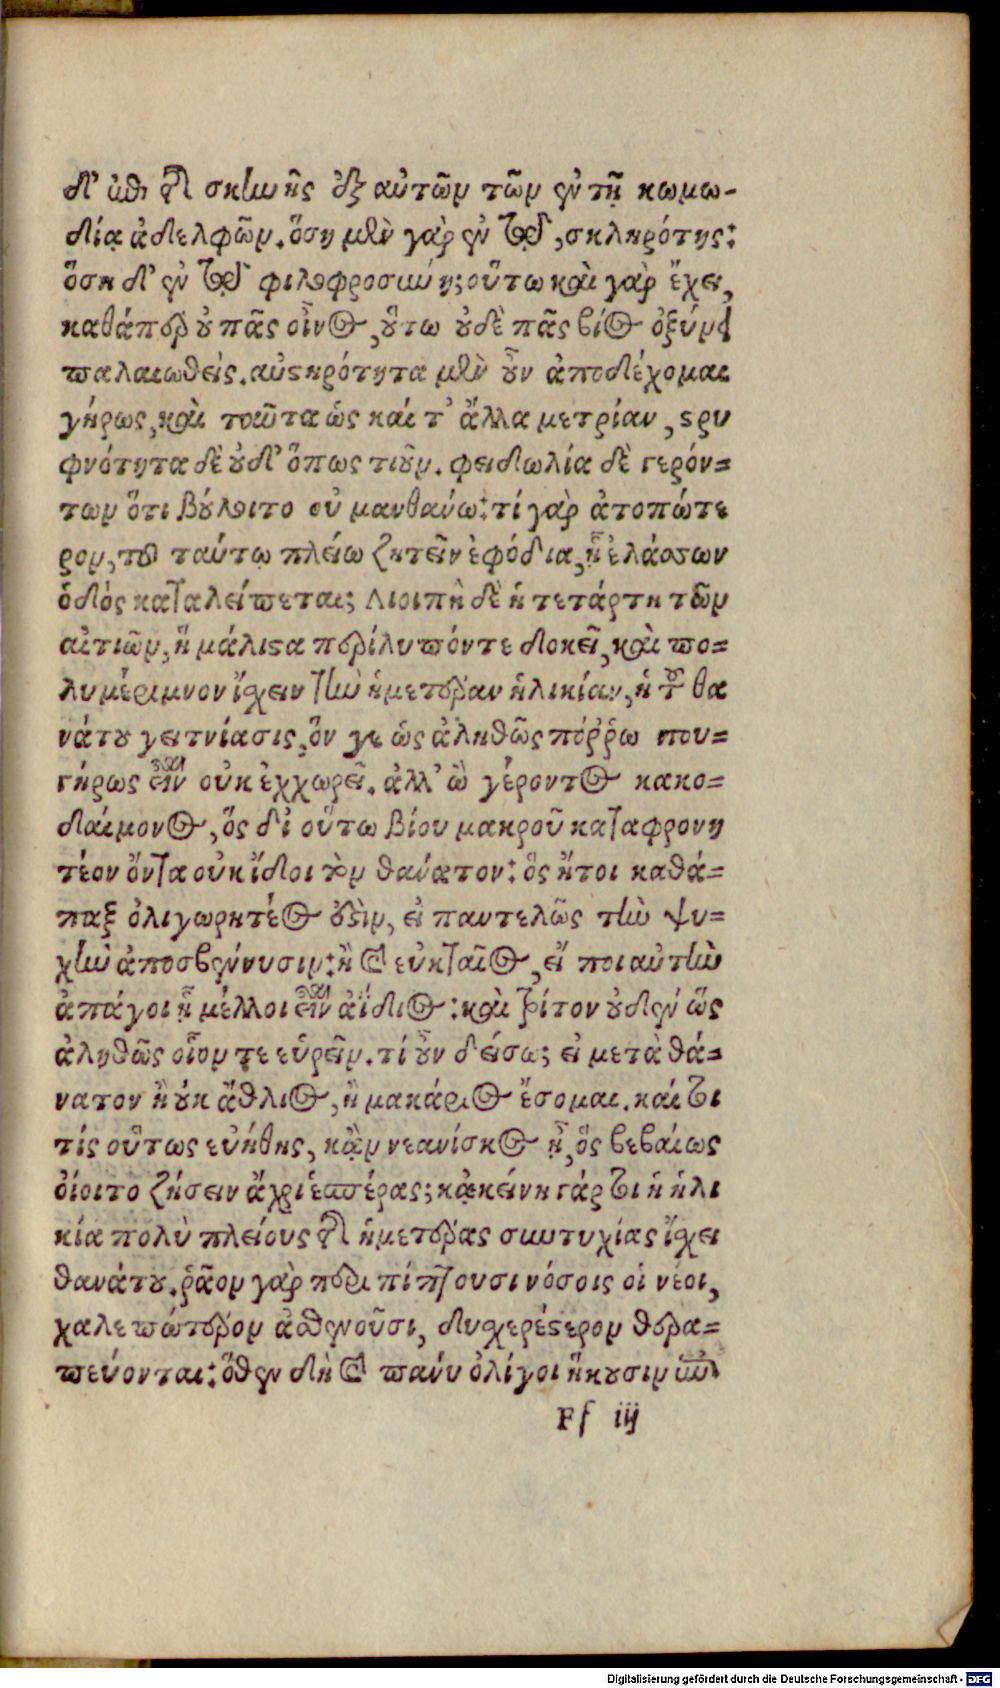 δ' ἐπὶ τῆς σκηνῆς ἐξ αὐτῶν τῶν ἐν τῇ κωμω-
δίᾳ ἀδελφῶν. ὅση μὲν γὰρ ἐν τῷδε, σκληρότης:
ὅση δ' ἐν τῷδε φιλοφροσύνη; οὕτω καὶ γὰρ ἔχει,
καθάπερ οὐ πᾶς οἶνος, οὕτω οὐδὲ πᾶς βίος ὀξύνεται
παλαιωθείς. αὐστηρότητα μὲν οὖν ἀποδέχομαι
γήρως, καὶ τοιαῦτα ὡς καί τ' ἄλλα μετρίαν, στρυ
φνότητα δὲ οὐδ' ὅπως τιοῦν. φειδωλία δὲ γερόν=
των ὅτι βούλοιτο οὐ μανθάνω: τί γὰρ ἀτοπώτε
ρον, τοῦ ταύτῳ πλείω ζητεῖν ἐφόδια, ᾗ ἐλάσσων
ὁδὸς καταλείπεται; Λιοιπὴ δὲ ἡ τετάρτη τῶν
αἰτιῶν, ἣ μάλιστα περίλυπόντε δοκεῖ, καὶ πο=
λυμέριμνον ἴσχειν τὴν ἡμετέραν ἡλικίαν, ἡ τοῦ θα
νάτου γειτνίασις, ὅν γε ὡς ἀληθῶς πόῤῥω που=
γήρως εἶναι οὐκ ἐχχωρεῖ. ἀλλ' ὢ γέροντος κακο=
δαίμονος, ὅς δἰ οὕτω βίου μακροῦ καταφρονη
τέον ὄντα οὐκ ἴδοι τὸν θάνατον: ὅς ἤτοι καθά=
παξ ὀλιγωρητέος ἐστὶν, εἰ παντελῶς τὴν ψυ=
χὴν ἀποσβέννυσιν: ἢ καὶ εὐκταῖος, εἴ ποι αὐτὴν
ἀπάγοι ᾗ μέλλοι εἶναι ἀΐδιος: καὶ τρίτον οὐδὲν ὥς
ἀληθῶς οἷον τε εὑρεῖν. τί οὖν δείσω; εἰ μετὰ θά=
νατον ἢ οὐκ ἄθλιος, ἢ μακάριος ἔσομαι. καίτοι
τίς οὕτως εὐήθης, κᾂν νεανίσκος ᾖ, ὅς βεβαίως
οἴοιτο ζήσειν ἄχρι ἑσπέρας; κᾀκείνη γάρτοι ἡ ἡλι
κία πολὺ πλείους τῆς ἡμετέρας συντυχίας ἴσχει
θανάτου. ῥᾷον γὰρ περιπίπτουσι νόσοις οἱ νέοι,
χαλεπώτερον ἀσθενοῦσι, δυσχερέστερον θερα=
πεύονται: ὅθεν δὴ καὶ πάνυ ὀλίγοι ἥκουσιν ἐπὶ
Ff iij
Digitalisierung gefördert durch die Deutsche Forschungsgemeinschaft - DFG